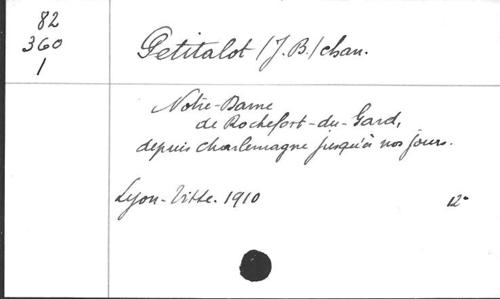 82
360
1
Petitalot (J.B.) chan.
Notre-Dame
de Rochefort-du-Gard,
depuis Charlemagne jusqu'à nos jours.
Lyon-Vitte. 1910
12°